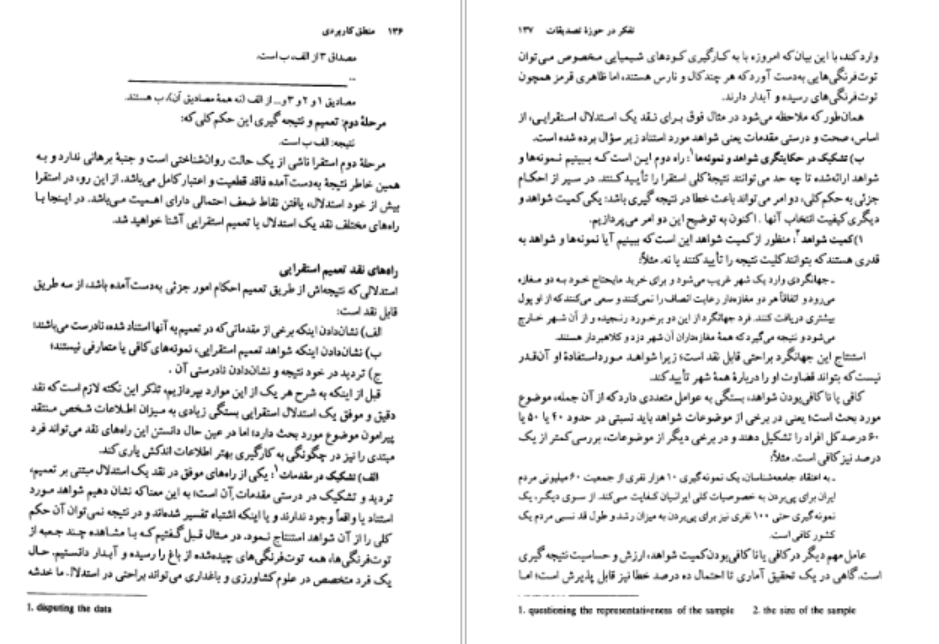 ۱۳۶ منطق کاربردی
مصداق ۳ از الف، ب است.
...
مصادیق ۱ و ۲ و ۳ و... از الف (نه همهٔ مصادیق آن)، ب هستند.
مرحلهٔ دوم: تعمیم و نتیجه گیری این حکم کلی که:
نتیجه: الف ب است.
مرحلهٔ دوم استقرا ناشی از یک حالت روان‌شناختی است و جنبهٔ برهانی ندارد و به
همین خاطر نتیجهٔ به‌دست‌آمده فاقد قطعیت و اعتبار کامل می‌باشد. از این رو، در استقرا
بیش از خود استدلال، یافتن نقاط ضعف احتمالی دارای اهمیت می‌باشد. در اینجا با
راه‌های مختلف نقد یک استدلال یا تعمیم استقرایی آشنا خواهید شد.
راه‌های نقد تعمیم استقرایی
استدلالی که نتیجه‌اش از طریق تعمیم احکام امور جزئی به‌دست‌آمده باشد، از سه طریق
قابل نقد است:
الف) نشان‌دادن اینکه برخی از مقدماتی که در تعمیم به آنها استناد شده، نادرست می‌باشند؛
ب) نشان‌دادن اینکه شواهد تعمیم استقرایی، نمونه‌های کافی یا متعارفی نیستند؛
ج) تردید در خود نتیجه و نشان‌دادن نادرستی آن .
قبل از اینکه به شرح هر یک از این موارد بپردازیم، تذکر این نکته لازم است که نقد
دقیق و موفق یک استدلال استقرایی بستگی زیادی به میزان اطلاعات شخص منتقد
پیرامون موضوع مورد بحث دارد؛ اما در عین حال دانستن این راه‌های نقد می‌تواند فرد
مبتدی را نیز در چگونگی به کارگیری بهتر اطلاعات اندکش یاری کند.
الف) تشکیک در مقدمات۱: یکی از راه‌های موفق در نقد یک استدلال مبتنی بر تعمیم،
تردید و تشکیک در درستی مقدمات آن است؛ به این معنا که نشان دهیم شواهد مورد
استناد یا واقعاً وجود ندارند و یا اینکه اشتباه تفسیر شده‌اند و در نتیجه نمی‌توان آن حکم
کلی را از آن شواهد استنتاج نمود. در مثال قبل گفتیم که با مشاهده چند جعبه از
توت‌فرنگی‌ها، همه توت‌فرنگی‌های چیده‌شده از باغ را رسیده و آبدار دانستیم. حال
یک فرد متخصص در علوم کشاورزی و باغداری می‌تواند براحتی در استدلال ما خدشه
1. disputing the data
تفکر در حوزهٔ تصدیقات ۱۳۷
وارد کند، با این بیان که امروزه با به کارگیری کودهای شیمیایی مخصوص می‌توان
توت‌فرنگی‌هایی به‌دست آورد که هر چند کال و نارس هستند، اما ظاهری قرمز همچون
توت‌فرنگی‌های رسیده و آبدار دارند.
همان‌طور که ملاحظه می‌شود در مثال فوق برای نقد یک استدلال استقرایی، از
اساس، صحت و درستی مقدمات یعنی شواهد مورد استناد زیر سؤال برده شده است.
ب) تشکیک در حکایتگری شواهد و نمونه‌ها۱: راه دوم این است که ببینیم نمونه‌ها و
شواهد ارائه‌شده تا چه حد می‌توانند نتیجهٔ کلی استقرا را تأیید کنند. در سیر از احکام
جزئی به حکم کلی، دو امر می‌تواند باعث خطا در نتیجه گیری باشد: یکی کمیت شواهد و
دیگری کیفیت انتخاب آنها . اکنون به توضیح این دو امر می‌پردازیم.
۱) کمیت شواهد۲: منظور از کمیت شواهد این است که ببینیم آیا نمونه‌ها و شواهد به
قدری هستند که بتوانند کلیت نتیجه را تأیید کنند یا نه. مثلاً:
ـ جهانگردی وارد یک شهر غریب می‌شود و برای خرید مایحتاج خود به دو مغازه
می‌رود و اتفاقاً هر دو مغازه‌دار رعایت انصاف را نمی‌کنند و سعی می‌کنند که از او پول
بیشتری دریافت کنند. فرد جهانگرد از این دو برخورد رنجیده و از آن شهر خارج
می‌شود و نتیجه می‌گیرد که همهٔ مغازه‌داران آن شهر دزد و کلاهبردار هستند.
استنتاج این جهانگرد براحتی قابل نقد است؛ زیرا شواهد مورد‌استفادهٔ او آن‌قدر
نیست که بتواند قضاوت او را دربارهٔ همهٔ شهر تأیید کند.
کافی یا نا کافی‌بودن شواهد، بستگی به عوامل متعددی دارد که از آن جمله، موضوع
مورد بحث است؛ یعنی در برخی از موضوعات شواهد باید نسبتی در حدود ۴۰ یا ۵۰ یا
۶۰ درصد کل افراد را تشکیل دهند و در برخی دیگر از موضوعات، بررسی کمتر از یک
درصد نیز کافی است. مثلاً:
ـ به اعتقاد جامعه‌شناسان، یک نمونه‌گیری ۱۰ هزار نفری از جمعیت ۶۰ میلیونی مردم
ایران برای پی‌بردن به خصوصیات کلی ایرانیان کفایت می‌کند. از سوی دیگر، یک
نمونه‌گیری حتی ۱۰۰ نفری نیز برای پی‌بردن به میزان رشد و طول قد نسبی مردم یک
کشور کافی است.
عامل مهم دیگر در کافی یا نا کافی‌بودن کمیت شواهد، ارزش و حساسیت نتیجه گیری
است. گاهی در یک تحقیق آماری تا احتمال ده درصد خطا نیز قابل پذیرش است؛ اما
1. questioning the representativeness of the sample 2. the size of the sample